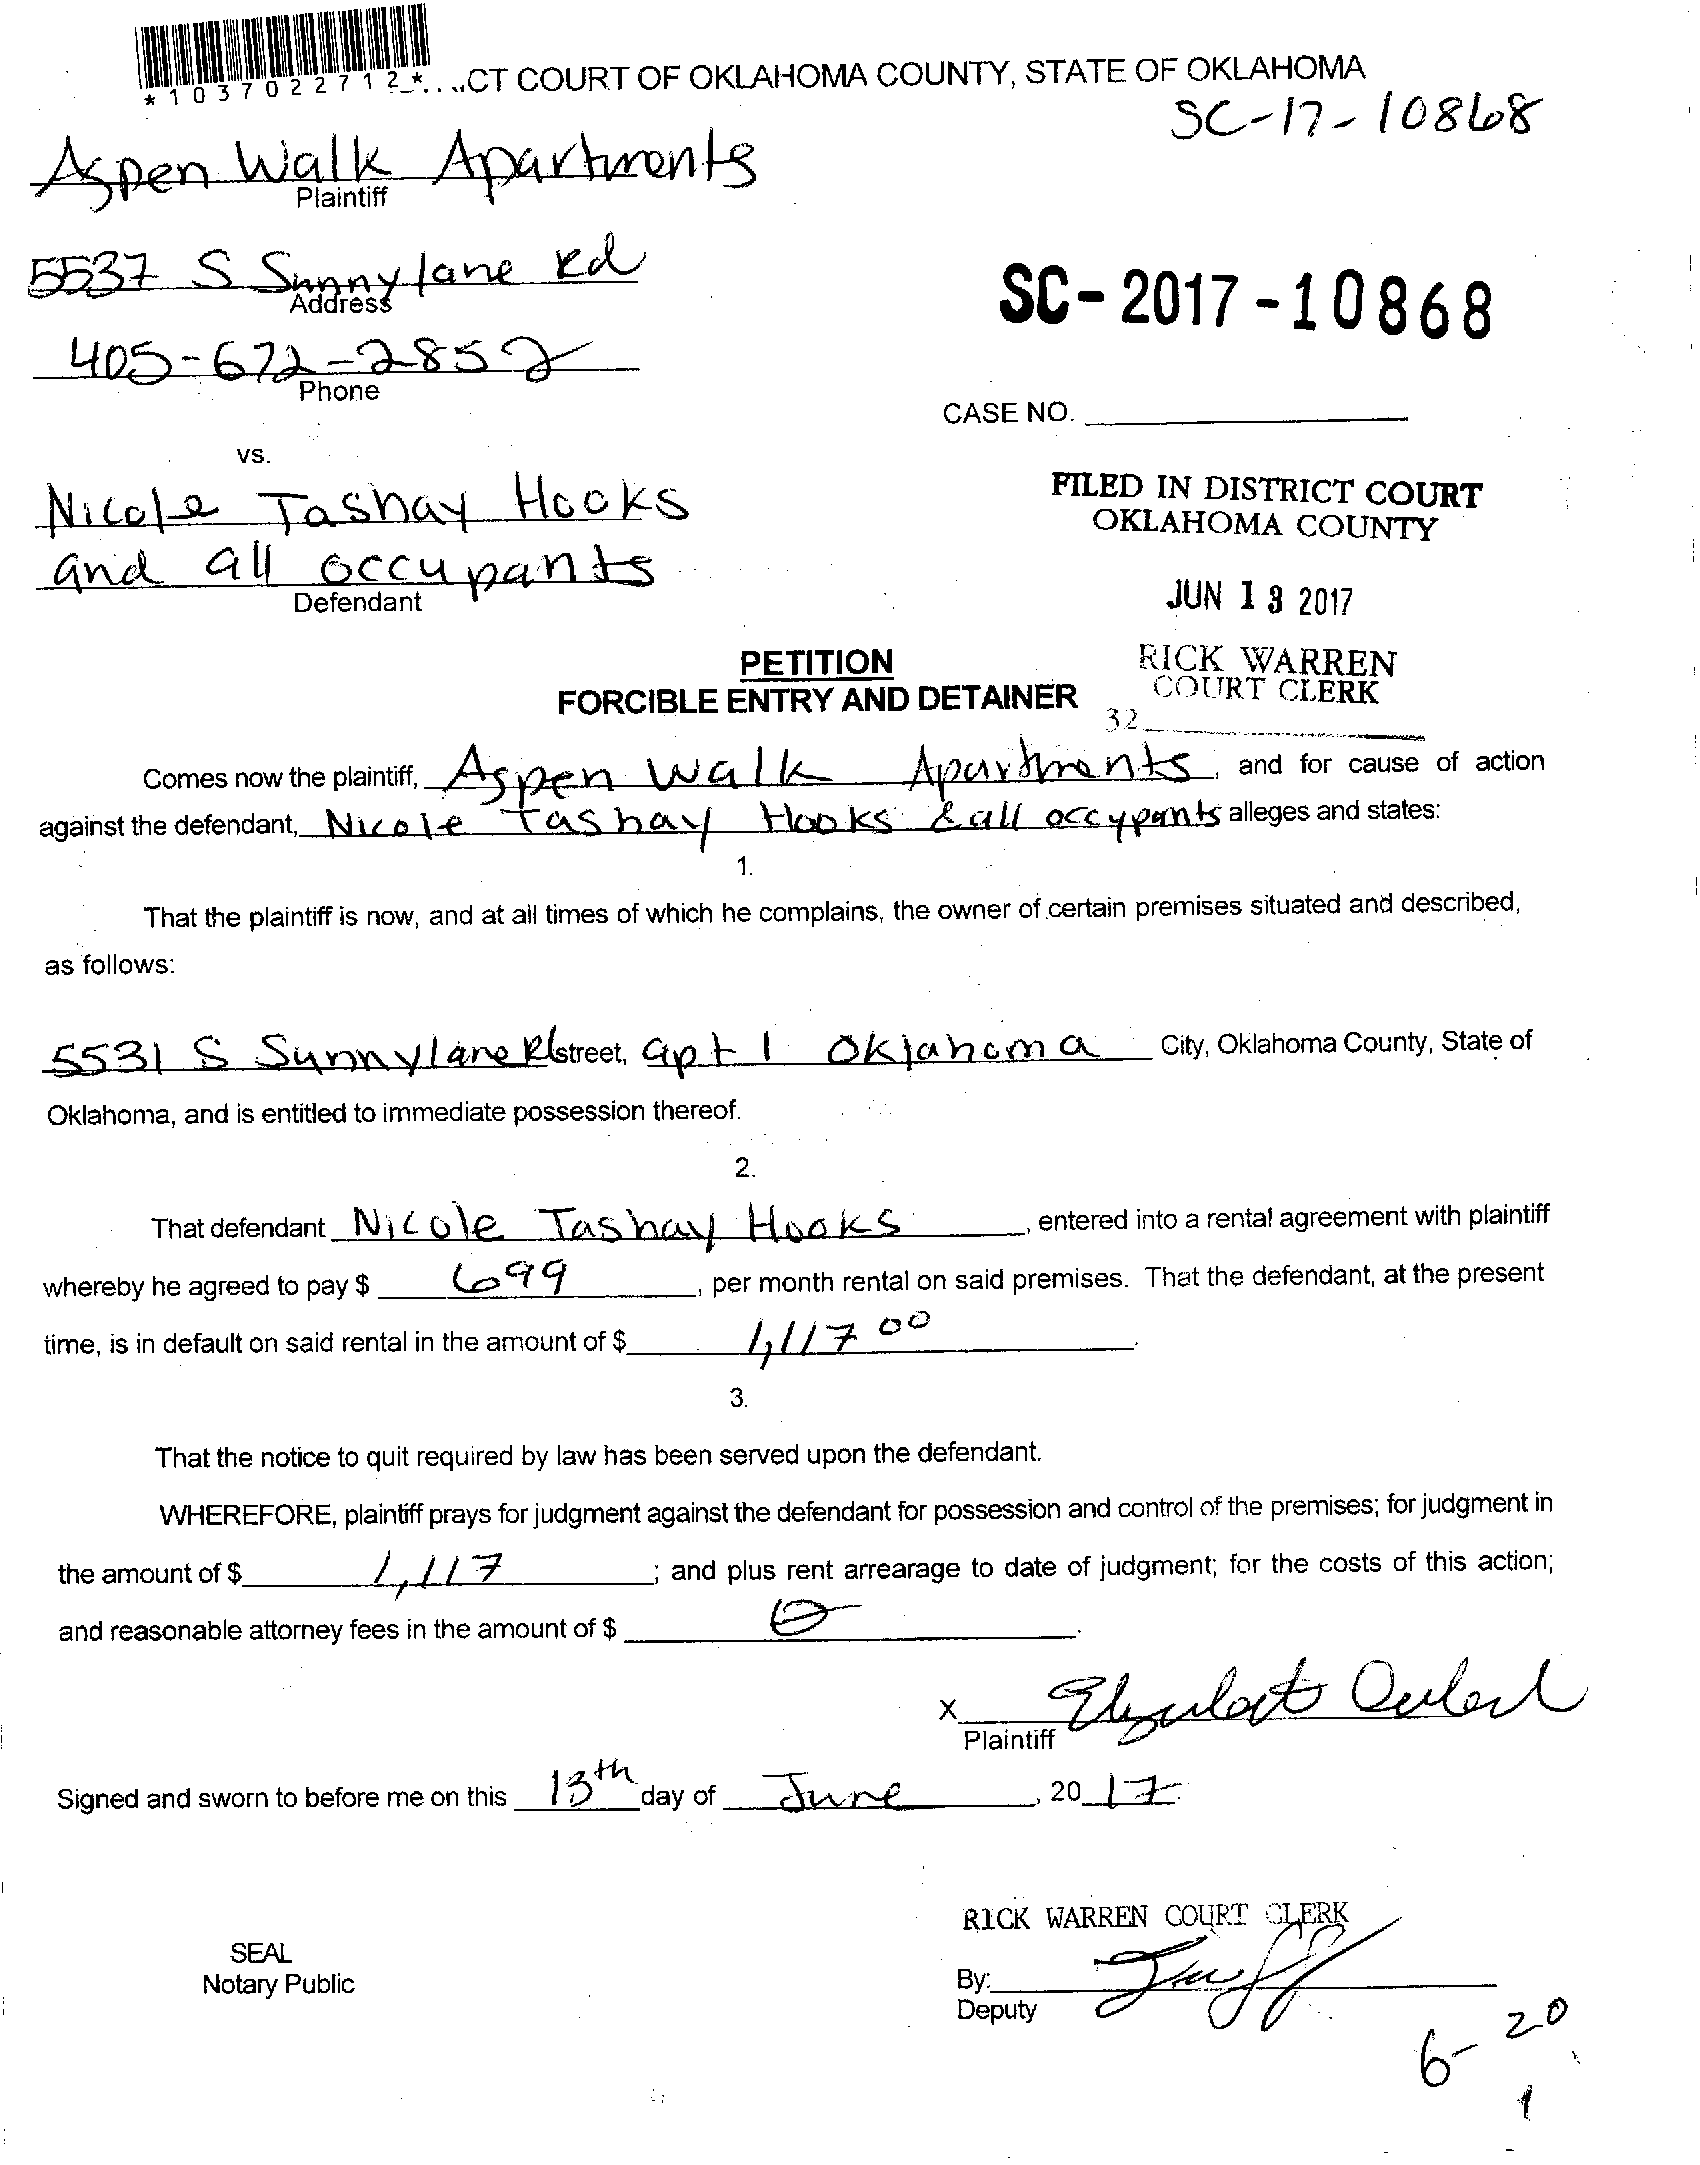 *1037022712* CT COURT OF OKLAHOMA COUNTY, STATE OF OKLAHOMA
SC-17-10868
Aspen Walk Apartments
Plaintiff
5537 S Sunnylane Rd
Address
SC-2017-10868
405-672-2852
Phone
CASE NO.
vs.
Nicole Tashay Hooks
FILED IN DISTRICT COURT
OKLAHOMA COUNTY
and all occupants
Defendant
JUN 13 2017
PETITION
RICK WARREN
FORCIBLE ENTRY AND DETAINER
COURT CLERK
32
Comes now the plaintiff, Aspen Walk Apartments, and for cause of action
against the defendant, Nicole Tashay Hooks & all occupants alleges and states:
1.
That the plaintiff is now, and at all times of which he complains, the owner of certain premises situated and described,
as follows:
5531 S Sunnylane Rd street, apt 1 Oklahoma City, Oklahoma County, State of
Oklahoma, and is entitled to immediate possession thereof.
2.
That defendant Nicole Tashay Hooks, entered into a rental agreement with plaintiff
whereby he agreed to pay $ 699, per month rental on said premises. That the defendant, at the present
time, is in default on said rental in the amount of $ 1,117 00.
3.
That the notice to quit required by law has been served upon the defendant.
WHEREFORE, plaintiff prays for judgment against the defendant for possession and control of the premises; for judgment in
the amount of $ 1,117; and plus rent arrearage to date of judgment; for the costs of this action;
and reasonable attorney fees in the amount of $ 0.
X
Plaintiff
Signed and sworn to before me on this 13th day of June, 20 17.
RICK WARREN COURT CLERK
SEAL
Notary Public
By:
Deputy
6-20
1